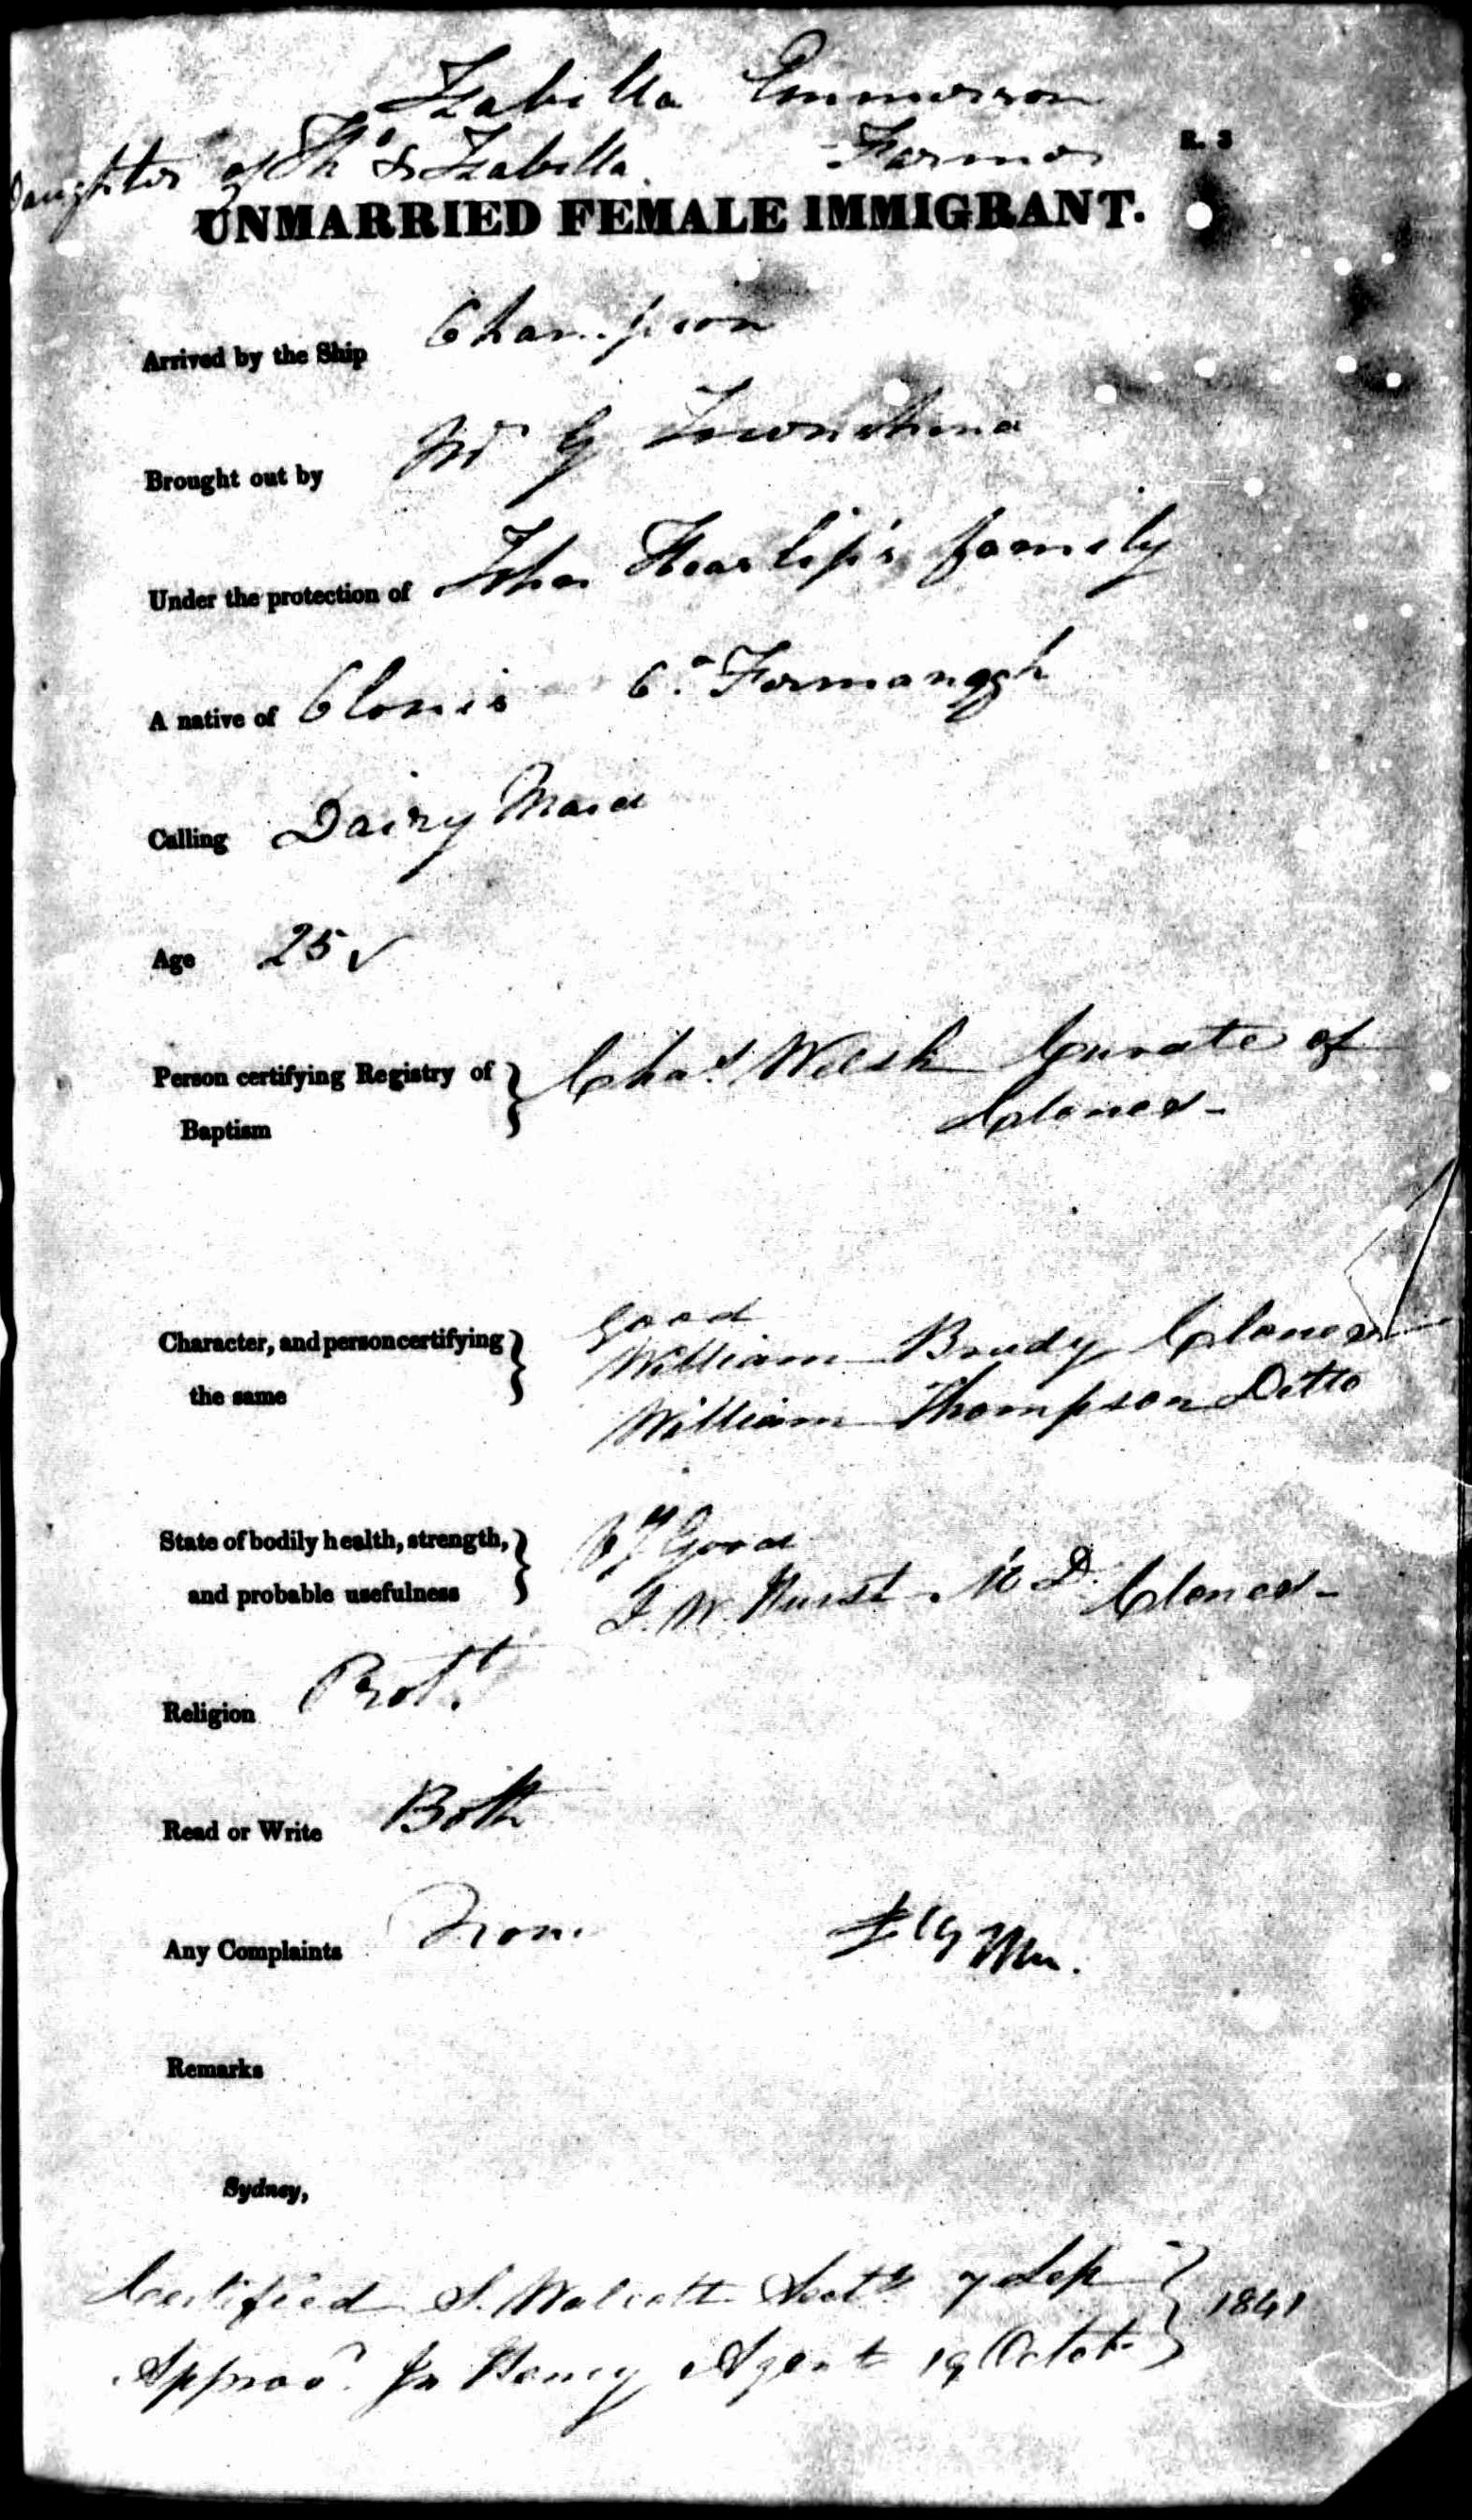 Izabilla Emmerson
Daughter of Thos & Izabilla. Farmer
R. 3
UNMARRIED FEMALE IMMIGRANT.
Arrived by the Ship Champion
Brought out by Mr G Townshend
Under the protection of John Hearlip's family
A native of Clonis Co. Formanagh
Calling Dairy Maid
Age 25 ✓
Person certifying Registry of } Chas. Welsh Curate of
Baptism Clones -
Character, and person certifying } Good
the same William Brudy Clones
William Thompson Ditto
State of bodily health, strength, } Good
and probable usefulness J. W. Hurst M D. Clones -
Religion Prot.t
Read or Write Both
Any Complaints None
Remarks
Sydney,
Certified S. Walcott 7 Sep } 1841
Approvd. Agent 19 Octob